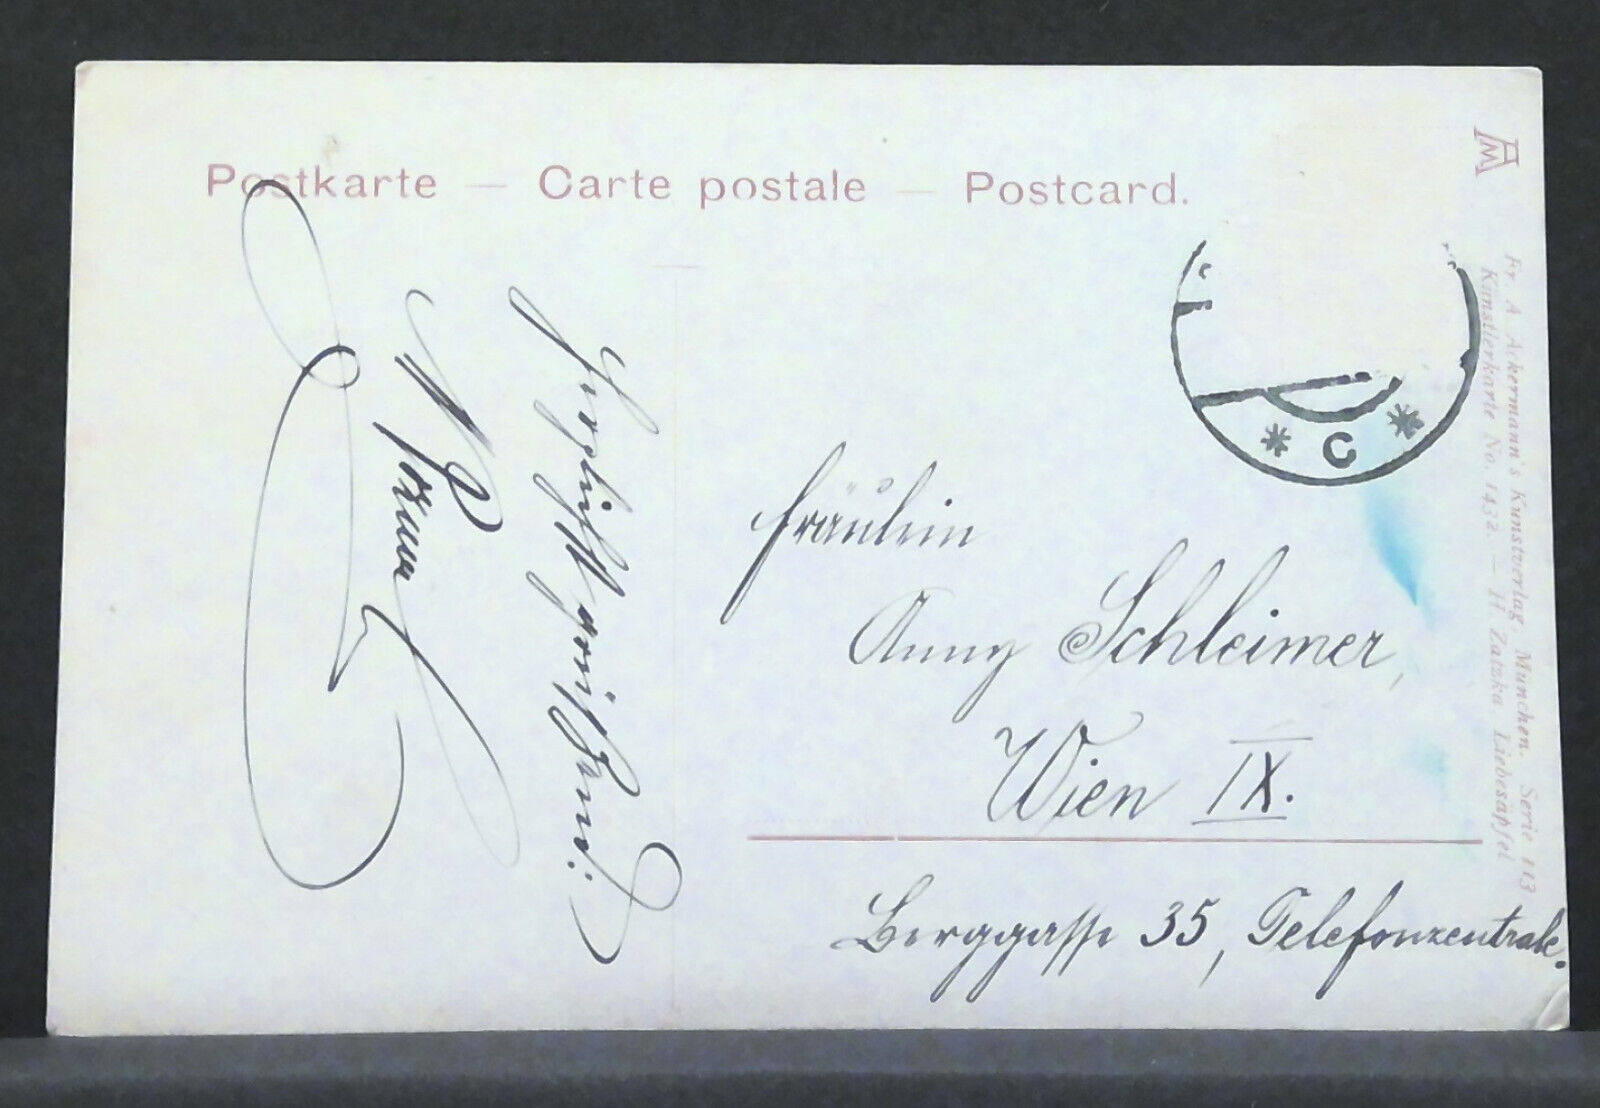 Postkarte — Carte postale — Postcard.
Fr. A. Ackermann's Kunstverlag, München. Serie 113
Künstlerkarte No. 1432. — H. Zatzka, Liebesäpfel
* C *
Fräulein
Anny Schleimer,
Wien IX.
Berggasse 35, Telefonzentrale.